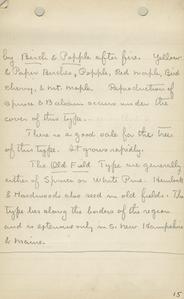 by Birch & Popple after fire. Yellow
& Paper Birches, Popple, Red Maple, Bird
Cherry, & Mt. Maple. Reproduction of
Spruce & Balsam occurs under the
cover of this type.
There is a good sale for the trees
of this type. It grows rapidly.
The Old Field Type are generally
either of Spruce or White Pine. Hemlock
& Hardwoods also seed in old fields. This
type lies along the borders of the region
and is extensive only in So. New Hampshire
& Maine.
15